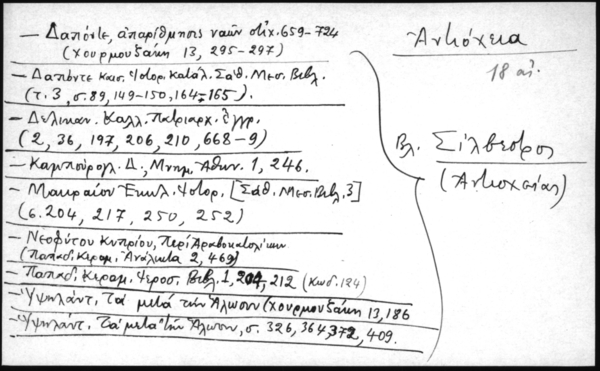 – Δαπόντε, ἀπαρίθμησις ναῶν στίχ. 659–724
(Χουρμουζάκη 13, 295–297)
– Δαπόντε Κων. Ἱστορ. Κατάλ. Σάθ. Μεσ. Βιβλ.
(τ. 3, σ. 89, 149–150, 164–165).
– Δελικαν. Καλλ. Πατριαρχ. Ἔγγρ.
(2, 36, 197, 206, 210, 668–9)
– Καμπούρογλ. Δ., Μνημ. Ἀθην. 1, 246.
– Μακραίου Ἐκκλ. Ἱστορ. [Σάθ. Μεσ. Βιβλ. 3]
(σ. 204, 217, 250, 252)
– Νεοφύτου Κυπρίου, Περί Ἀραβοκατολίκων
(Παπαδ. Κεραμ. Ἀνάλεκτα 2, 469)
– Παπαδ. Κεραμ. Ἱεροσ. Βιβλ. 1, 204, 212 (Κωδ. 124)
– Ὑψηλάντ. Τά μετά τήν Ἅλωσιν (Χουρμουζάκη 13, 186
– Ὑψηλάντ. Τά μετά τήν Ἅλωσιν, σ. 326, 364, 372, 409.
Ἀντιόχεια
18 αἰ.
Βλ. Σίλβεστρος
(Ἀντιοχείας)